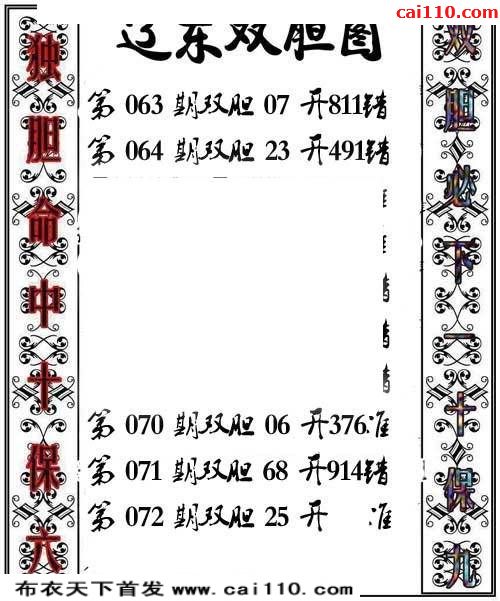 cai110.com
辽东双胆图
第 063 期双胆 07 开811错
第 064 期双胆 23 开491错
第 070 期双胆 06 开376准
第 071 期双胆 68 开914错
第 072 期双胆 25 开 准
独胆命中十保六
双胆必下一十保九
布衣天下首发 www.cai110.com